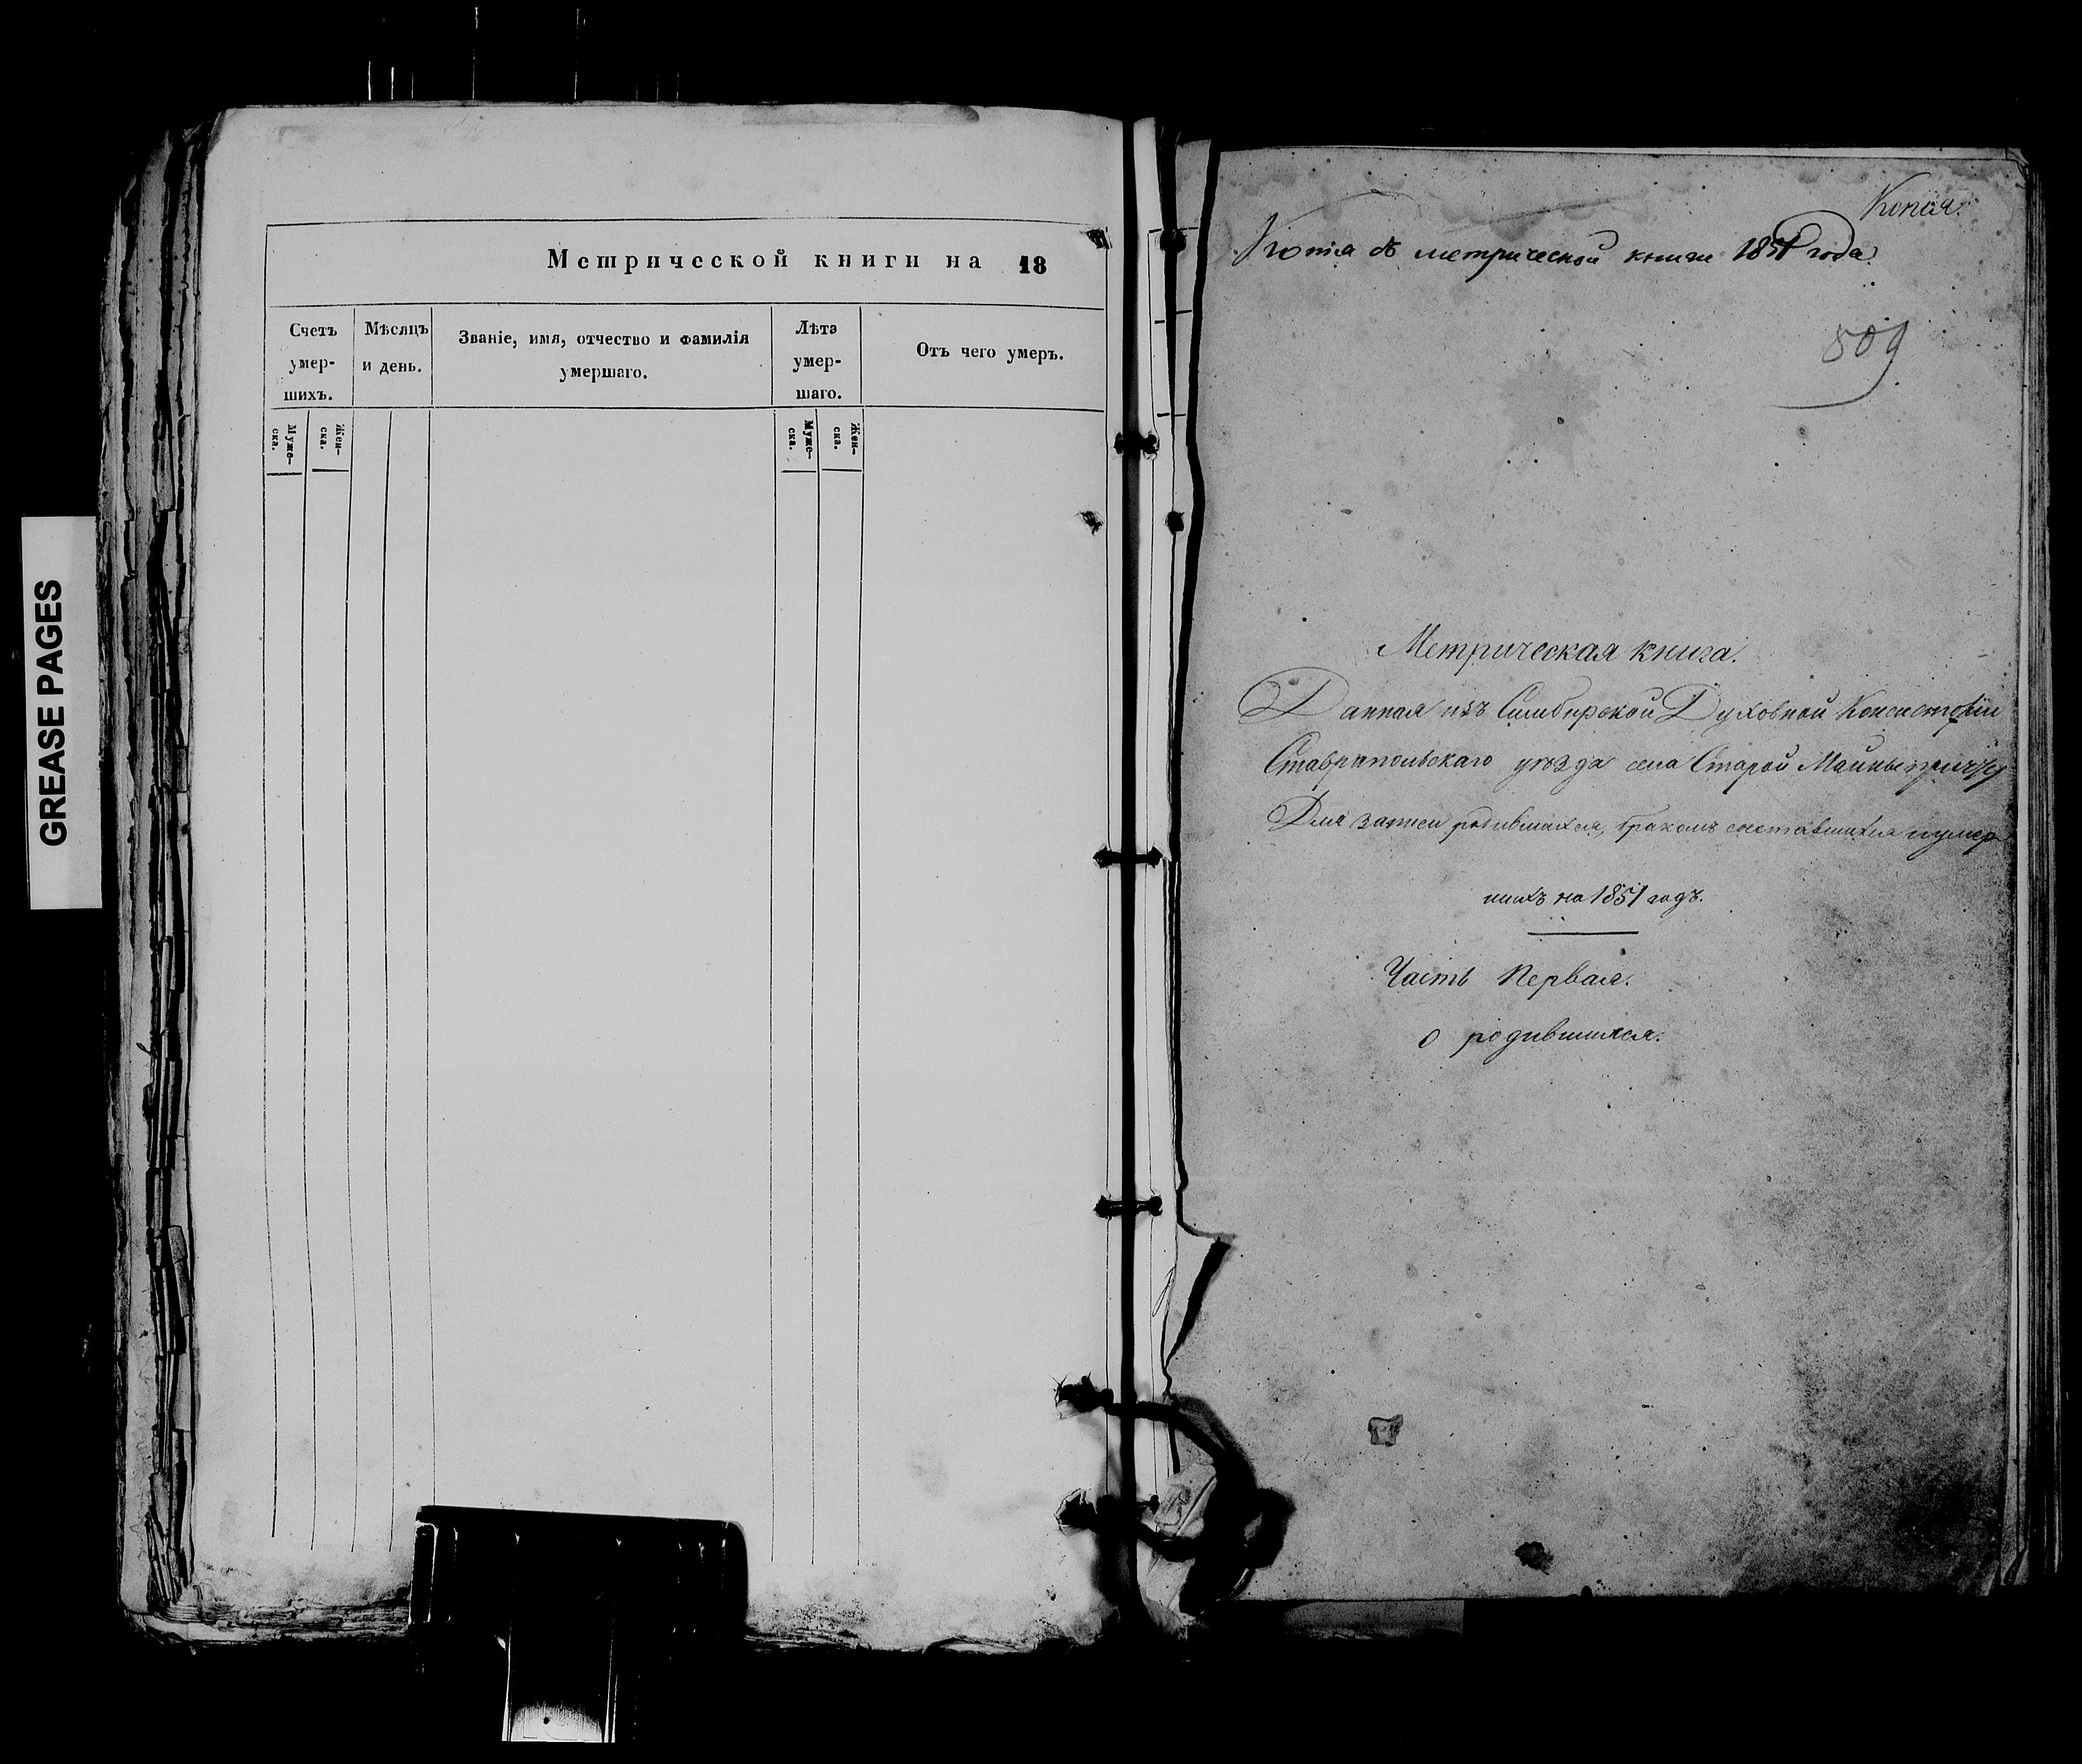 GREASE PAGES
Метрической книги на 18
Счетъ умер- шихъ.
Мѣсяцъ и день.
Званіе, имя, отчество и фамилія умершаго.
Лѣта умер- шаго.
Отъ чего умеръ.
Муже- ска.
Жен- ска.
Муже- ска.
Жен- ска.
Копія.
Копія съ метрической книги 1851 года.
509
Метрическая книга.
Данная изъ Симбирской Духовной Консисторіи
Ставропольскаго уѣзда села Старой Майны причту
Для записи родившихся, бракомъ сочетавшихся и умер
шихъ на 1851 годъ.
Часть Первая.
о родившихся.